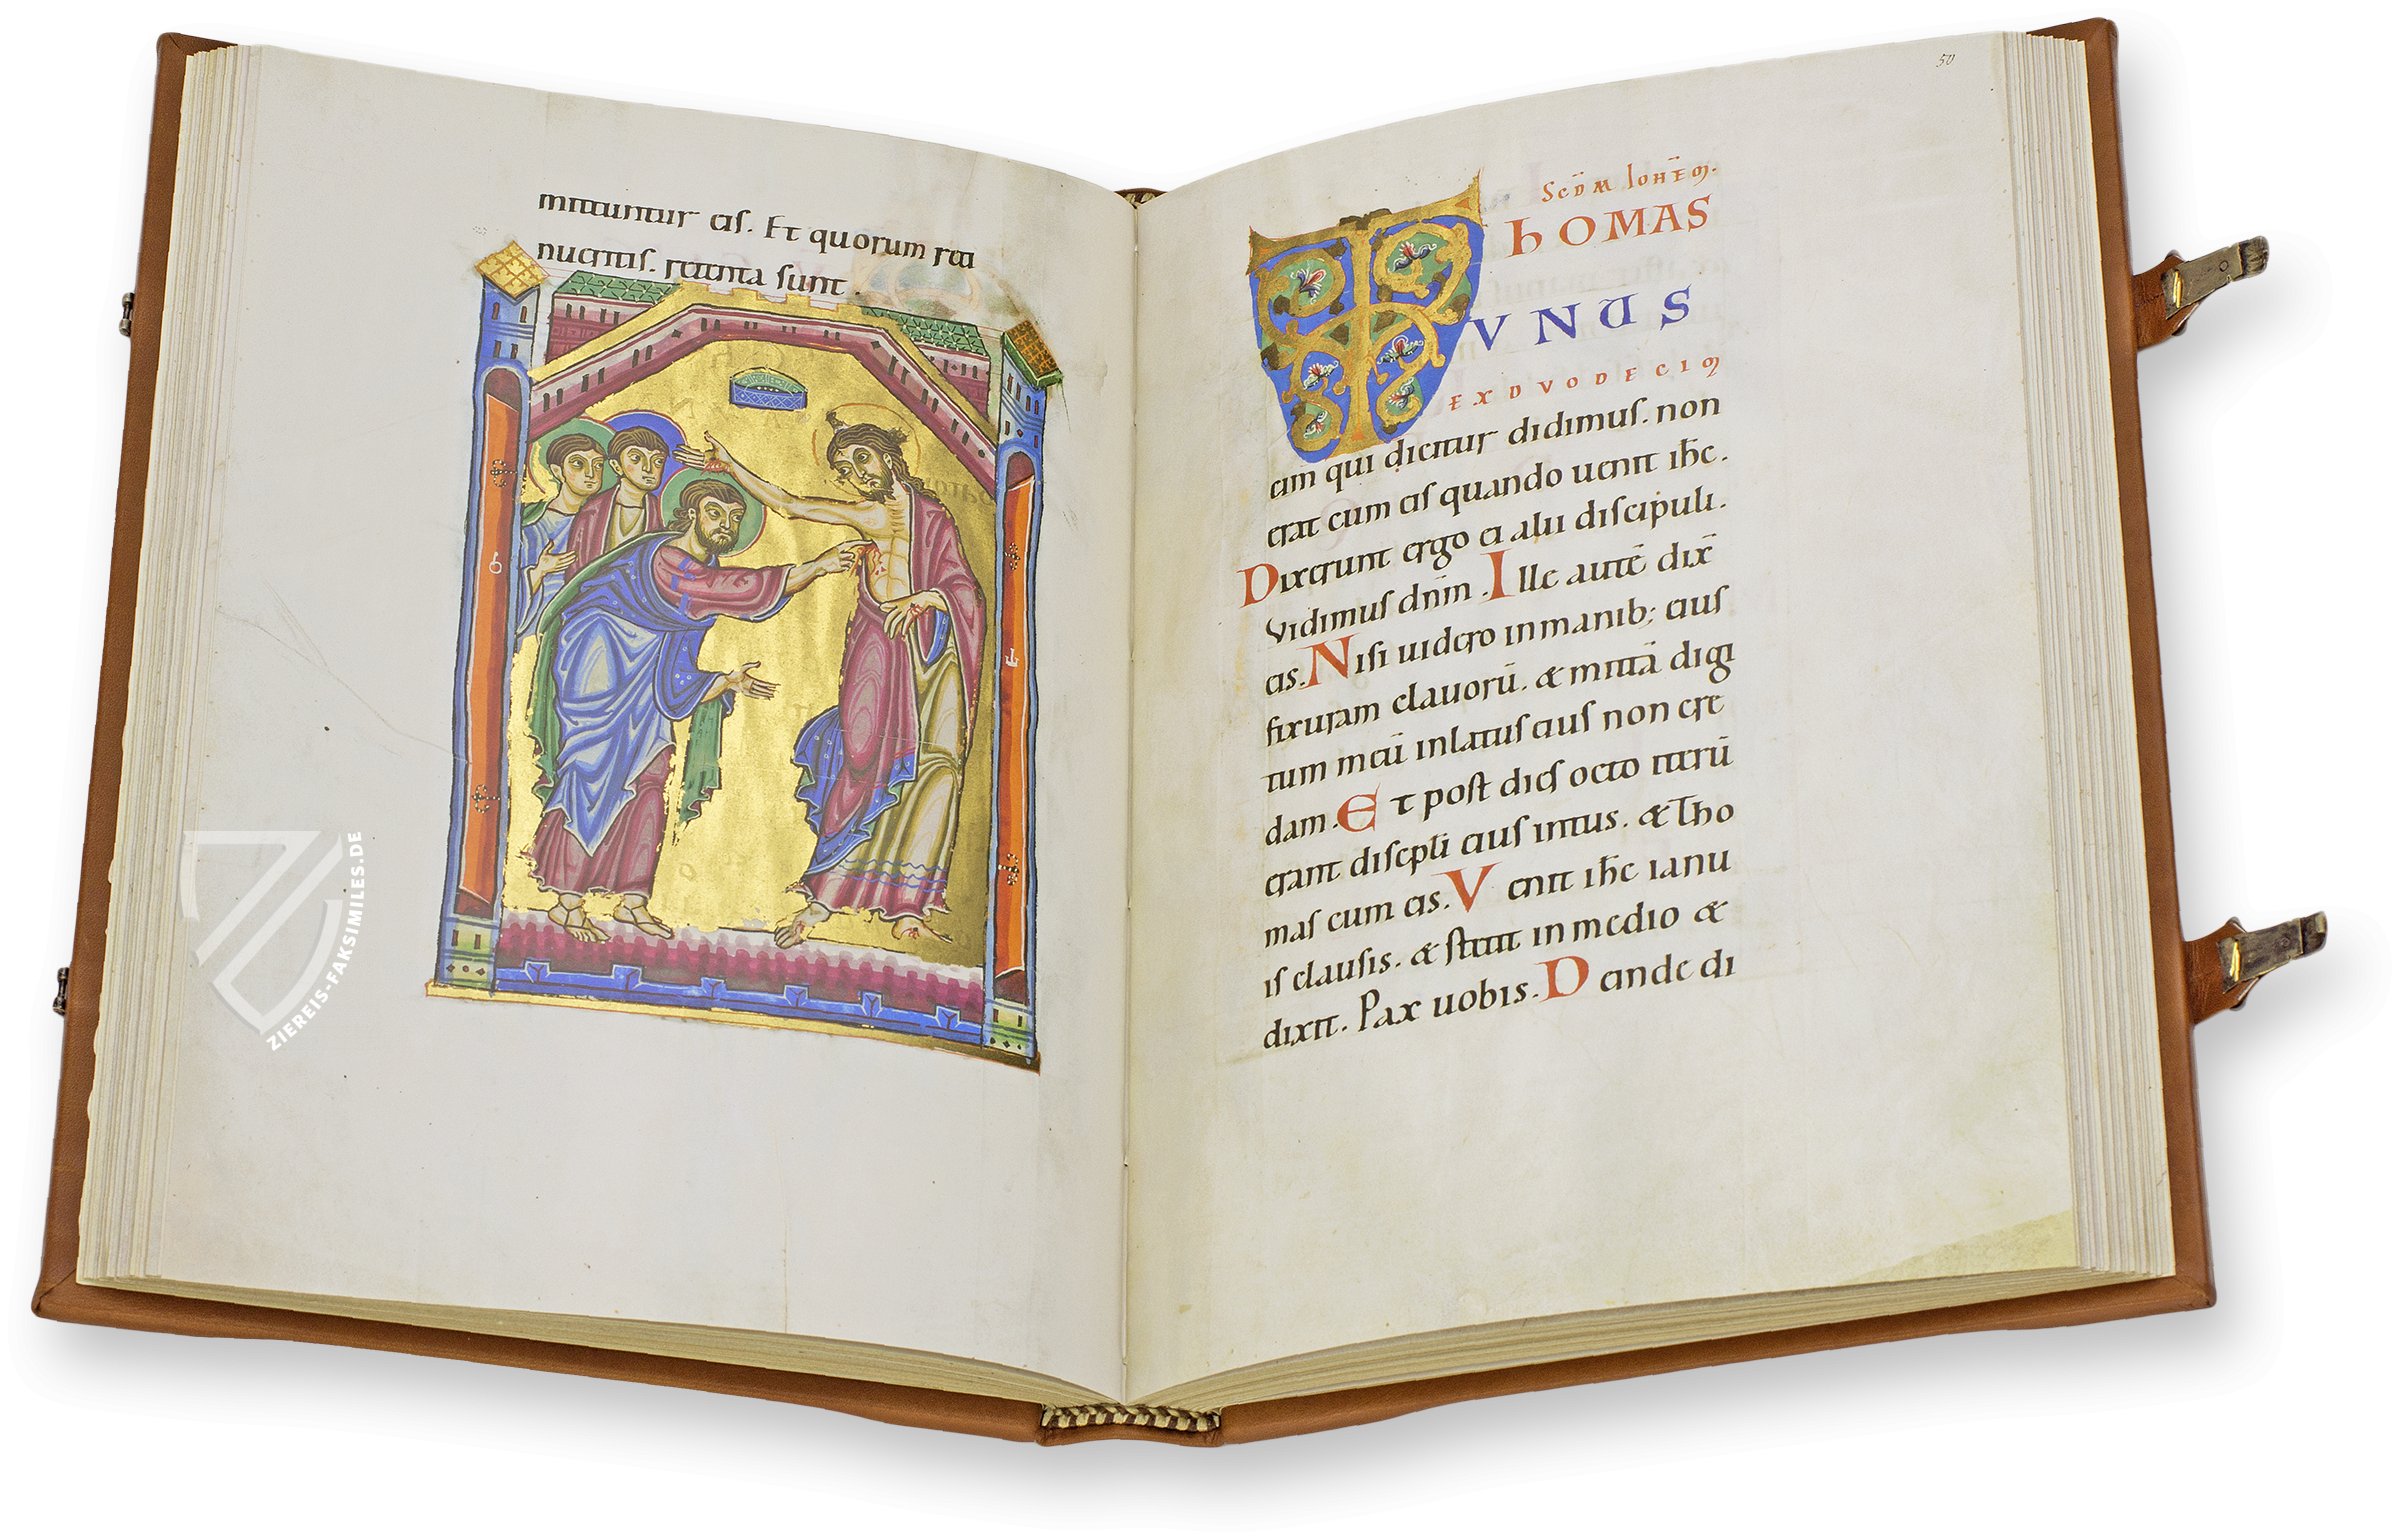 mittuntur eis. Et quorum reti
nueritis. retenta sunt.
ZIEREIS-FAKSIMILES.DE
50
SCDM IOHEM.
THOMAS
VNUS
EX DVODECIM
eim qui dicitur didimus. non
erat cum eis quando uenit ihc.
Dixerunt ergo ei alii discipuli.
Vidimus dnm. Ille autē dix̄
eis. Nisi uidero in manib; eius
fixuram clavorū. & mittā digi
tum meū in latus eius non cre
dam. Et post dies octo iterū
erant discpli eius intus. & Tho
mas cum eis. Venit ihc ianu
is clausis. & stetit in medio &
dixit. Pax uobis. Deinde di